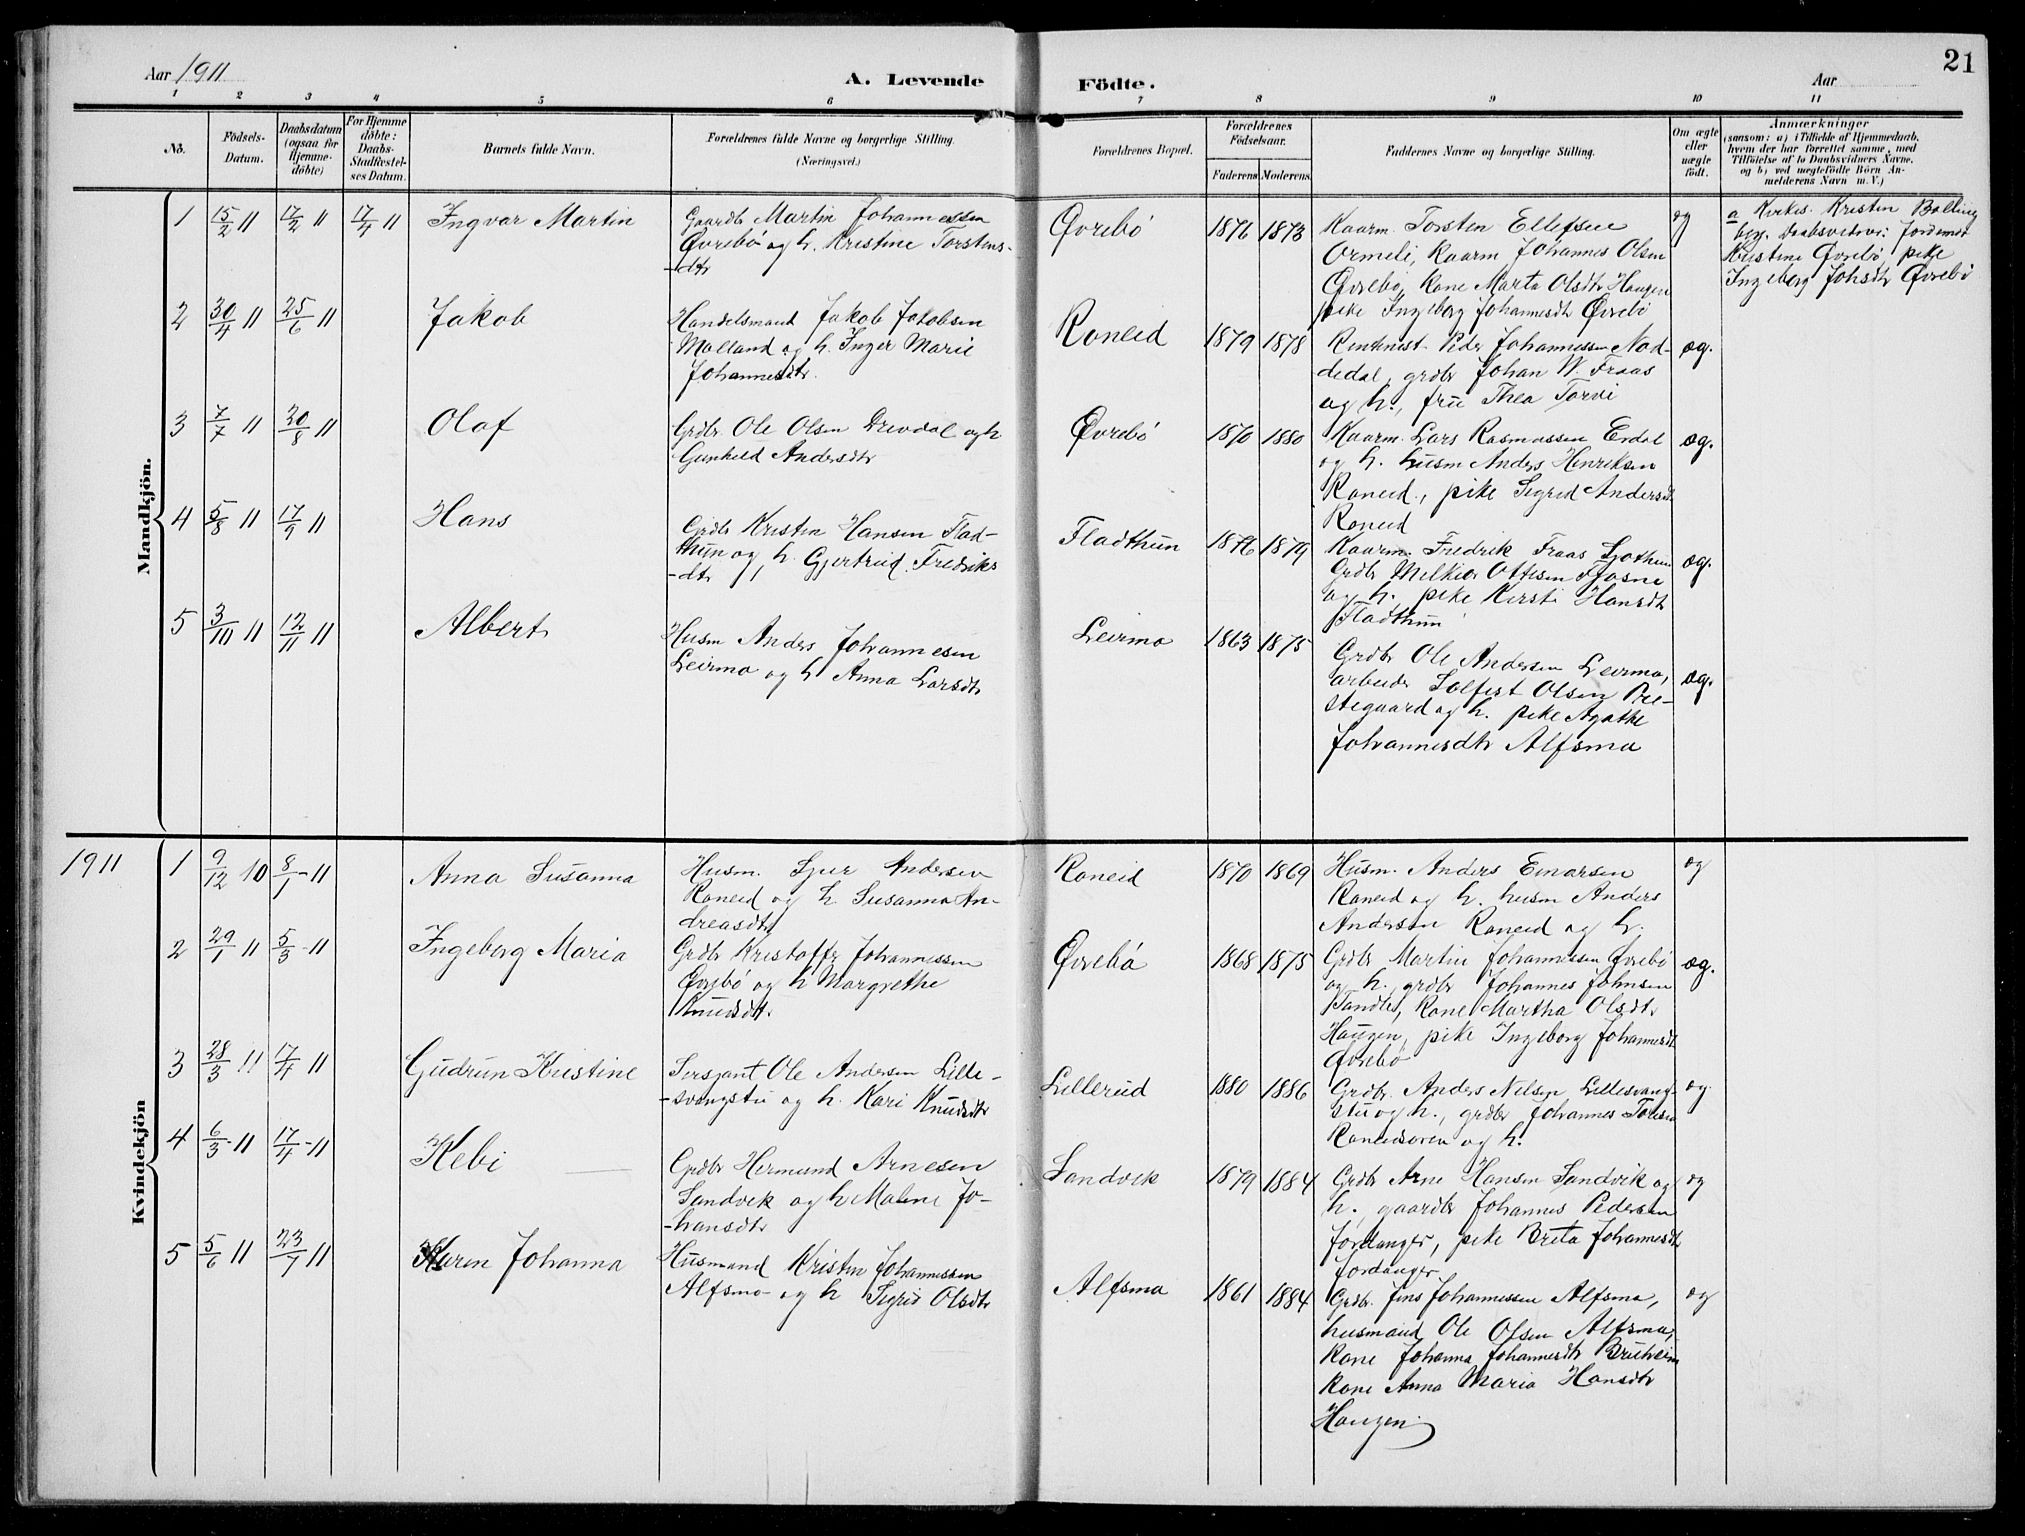 21
Aar 1911
A. Levende
Födte.
Aar
1 2 3 4 5 6 7 8 9 10 11
No.
Födsels-
Datum.
Daabsdatum
(ogsaa for
Hjemme-
döbte)
For Hjemme
döbte:
Daabs-
Stadfæstel-
ses Datum.
Barnets fulde Navn.
Forældrenes fulde Navne og borgerlige Stilling.
(Næringsvei.)
Forældrenes Bopæl.
Forældrenes
Födselsaar.
Faderens Moderens
Faddernes Navne og borgerlige Stilling.
Om ægte
eller
uægte
födt.
Anmærkninger
(saasom: a) i Tilfælde af Hjemmedaab,
hvem der har forrettet samme, med
Tilföielse af to Daabsvidners Navne.
og b) ved uægtefödte Börn An-
melderens Navn m. V.)
Mandkjön.
1 15/2 11 17/2 11 17/4 11 Ingvar Martin
Gaardbr Martin Johannessen
Øvrebö og h. Kristine Torstens-
-dtr
Øvrebö
1876 1873
Kaarm Torsten Ellefsen
Ormeli, Kaarm Johannes Olsen
Øvrebø, Kone Marta Olsdtr Haugen
pike Ingeborg Johannesdtr Øvrebö
og
a Kirkes. Kristen Bolling
berg. Daabsvidner: Jordemdr
Kristine Øvrebø, pike
Ingeborg Johsdtr Øvrebö
2 30/4 11 25/6 11 Jakob
Handelsmand Jakob Jakobsen
Molland og h. Inger Marie
Johannesdtr.
Roneid
1879 1878
Rentenist Peder Johannessen Nad-
dedal, grdbr Johan W. Fraas
og h., fru Thea Torvi
æg.
3 7/7 11 20/8 11 Olaf
Grdbr. Ole Olsen Drevdal og h
Gunhild Andersdtr
Øvrebö
1870 1880
Kaarm. Lars Rasmussen Erdal
og h. husm Anders Henriksen
Roneid, pike Sigrid Andersdt
Roneid
æg.
4 5/8 11 17/9 11 Hans
Grdbr Kristen Hansen Flad-
thun og h. Gjertrud Fredriks
-dtr
Fladthun
1876 1879
Kaarm. Fredrik Fraas Ljothun
Grdbr Melkior Ottesen Fjøsne
og h. pike Kirsti Hansdtr
Fladthun
æg.
5 3/10 11 12/11 11 Albert
Husm Anders Johannesen
Leirmo og h Anna Larsdtr
Leirmo
1863 1875
Grdbr Ole Andersen Leirmo,
arbeider Solfest Olsen Pre-
stegaard og h. pike Agathe
Johannesdtr Alfsmo
æg.
1911
Kvindekjön
1 9/12 10 8/1 - 11 Anna Susanna
Husm. Sjur Andersen
Roneid og h Susanna An-
dreasdtr
Roneid
1870 1869
Husm. Anders Einarsen
Roneid og h. husm Anders
Anderson Roneid og h.
og
2 29/1 11 5/3 - 11 Ingeborg Maria
Grdbr Kristoffer Johannessen
Øvrebö og h Margrethe
Knudsdtr.
Øvrebö
1868 1875
Grdbr Martin Johannessen Øvrebö
og h, grdbr Johannes Johnsen
Tandle, Kone Martha Olsdtr
Haugen, pike Ingeborg Johannesdt
Øvrebö
æg.
3 28/3 11 17/4 11 Gudrun Kristine
Sersjant Ole Andersen Lille-
-svangstu og h. Kari Knudsdtr
Lillerud
1880 1886
Grdbr. Anders Nilsen Lillesvang-
stu og h., grdbr Johannes Tolesen
Roneidsøren og h.
og
4 6/3 - 11 17/4 - 11 Kebi
Grdbr Hermund Arnesen
Sandvik og h Malene Jo-
-hansdtr
Sandvik
1879 1884
Grdbr Arne Hansen Sandvik og
h., gaardbr Johannes Pedersen
Jordanger, pike Breta Johannesdt
Jordanger
og
5 5/6 11 23/7 11 Karen Johanna
Husmand Kristen Johannessen
Alfsmo og h Sigrid Olsdtr
Alfsmo
1861 1884
Grdbr. Jens Johannessen Alfsmo,
husmand Ole Olsen Alfsmo,
Kone Johanna Johannesdtr Bruheim
Kone Anna Maria Hansdtr
Haugen.
og